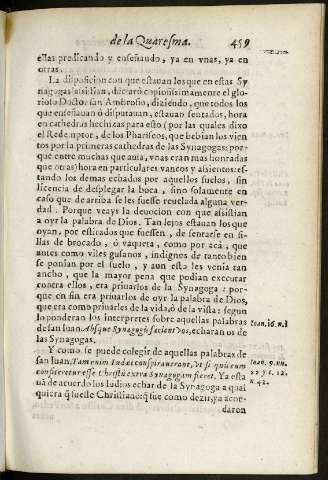 de la Quaresma. 459
ellas predicando y enseñando, ya en vnas, ya en
otras.
La disposicion con que estauan los que en estas Sy
nagogas asistian, declarò copiosissimamente el glo-
rioso Doctor san Ambrosio, diziendo, que todos los
que enseñauan ò disputauan, estauan sentados, hora
en cathedras hechizas para esto (por las quales dixo
el Redemptor, de los Phariseos, que bebian los vien
tos por la primeras cathedras de las Synagogas: por-
que entre muchas que auia, vnas eran mas honradas
que otras) hora en particulares vancos y assientos: es-
tando los demas echados por aquellos suelos, sin
licencia de desplegar la boca, sino solamente en
caso que de arriba se les fuesse reuelada alguna ver-
dad. Porque veays la deuocion con que assistian
a oyr la palabra de Dios. Tan lejos estauan los que
oyan, por esticados que fuessen, de sentarse en si-
llas de brocado, ò vaqueta, como por acà, que
antes como viles gusanos, indignes de tanto bien
se ponian por el suelo, y aun esto les venia tan
ancho, que la mayor pena que podian executar
contra ellos, era priuarlos de la Synagoga: por-
que en fin era priuarlos de oyr la palabra de Dios,
que era como priuarles de la vida, ò de la vista: segun
lo ponderan los interpretes sobre aquellas palabras
de san Iuan Absque Synagogis facient vos, echaran os de
las Synagogas.
Ioan. 16. n. 3
Y como se puede colegir de aquellas palabras de
san Iuan, Iam enim Iudæi conspirauerant, vt si quis eum
confiteretur esse Christũ extra Synagogam fieret. Ya esta
uã de acuerdo los Iudios echar de la Synagoga a qual
quiera q̃ fuesse Christiano: q̃ fue como dezir, ya acor-
Ioan. 9. nu.
22 y c. 12.
n. 42.
daron